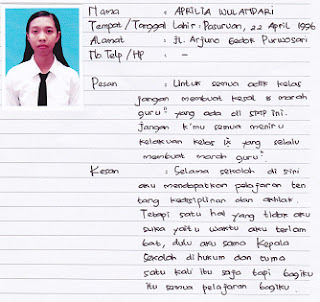 Nama : APRILIA WULANDARI
Tempat / Tanggal Lahir : Pasuruan, 22 April 1996
Alamat : Jl. Arjuno Gedok Purwosari
No. Telp / HP : -
Pesan : Untuk semua adik kelas
jangan membuat kesal & marah
guru" yang ada di SMP ini.
Jangan k'mu semua meniru
kelakuan kelas IX yang selalu
membuat marah guru".
Kesan : Selama sekolah di sini
aku mendapatkan pelajaran ten
tang kedisiplinan dan akhlak.
Tetapi satu hal yang tidak aku
suka yaitu waktu aku terlam
bat, dulu aku sama Kepala
Sekolah di hukum dan cuma
satu kali itu saja tapi bagiku
itu semua pelajaran bagiku.